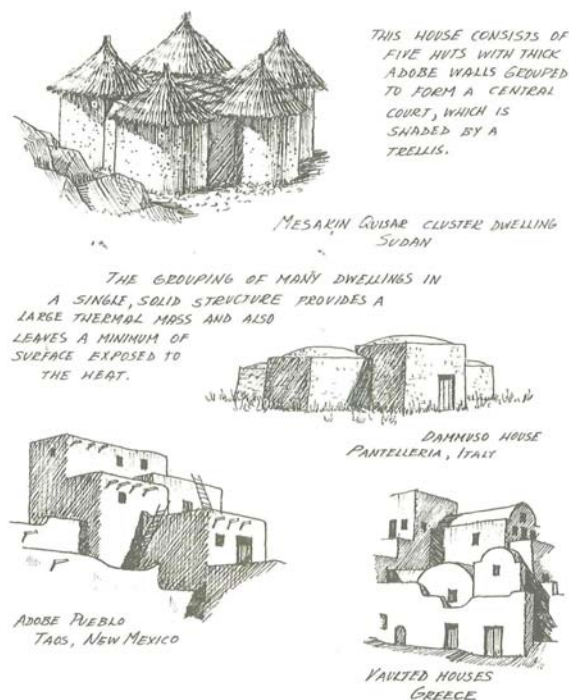 THIS HOUSE CONSISTS OF
FIVE HUTS WITH THICK
ADOBE WALLS GROUPED
TO FORM A CENTRAL
COURT, WHICH IS
SHADED BY A
TRELLIS.
MESAKIN QUISAR CLUSTER DWELLING
SUDAN
THE GROUPING OF MANY DWELLINGS IN
A SINGLE, SOLID STRUCTURE PROVIDES A
LARGE THERMAL MASS AND ALSO
LEAVES A MINIMUM OF
SURFACE EXPOSED TO
THE HEAT.
DAMMUSO HOUSE
PANTELLERIA, ITALY
ADOBE PUEBLO
TAOS, NEW MEXICO
VAULTED HOUSES
GREECE